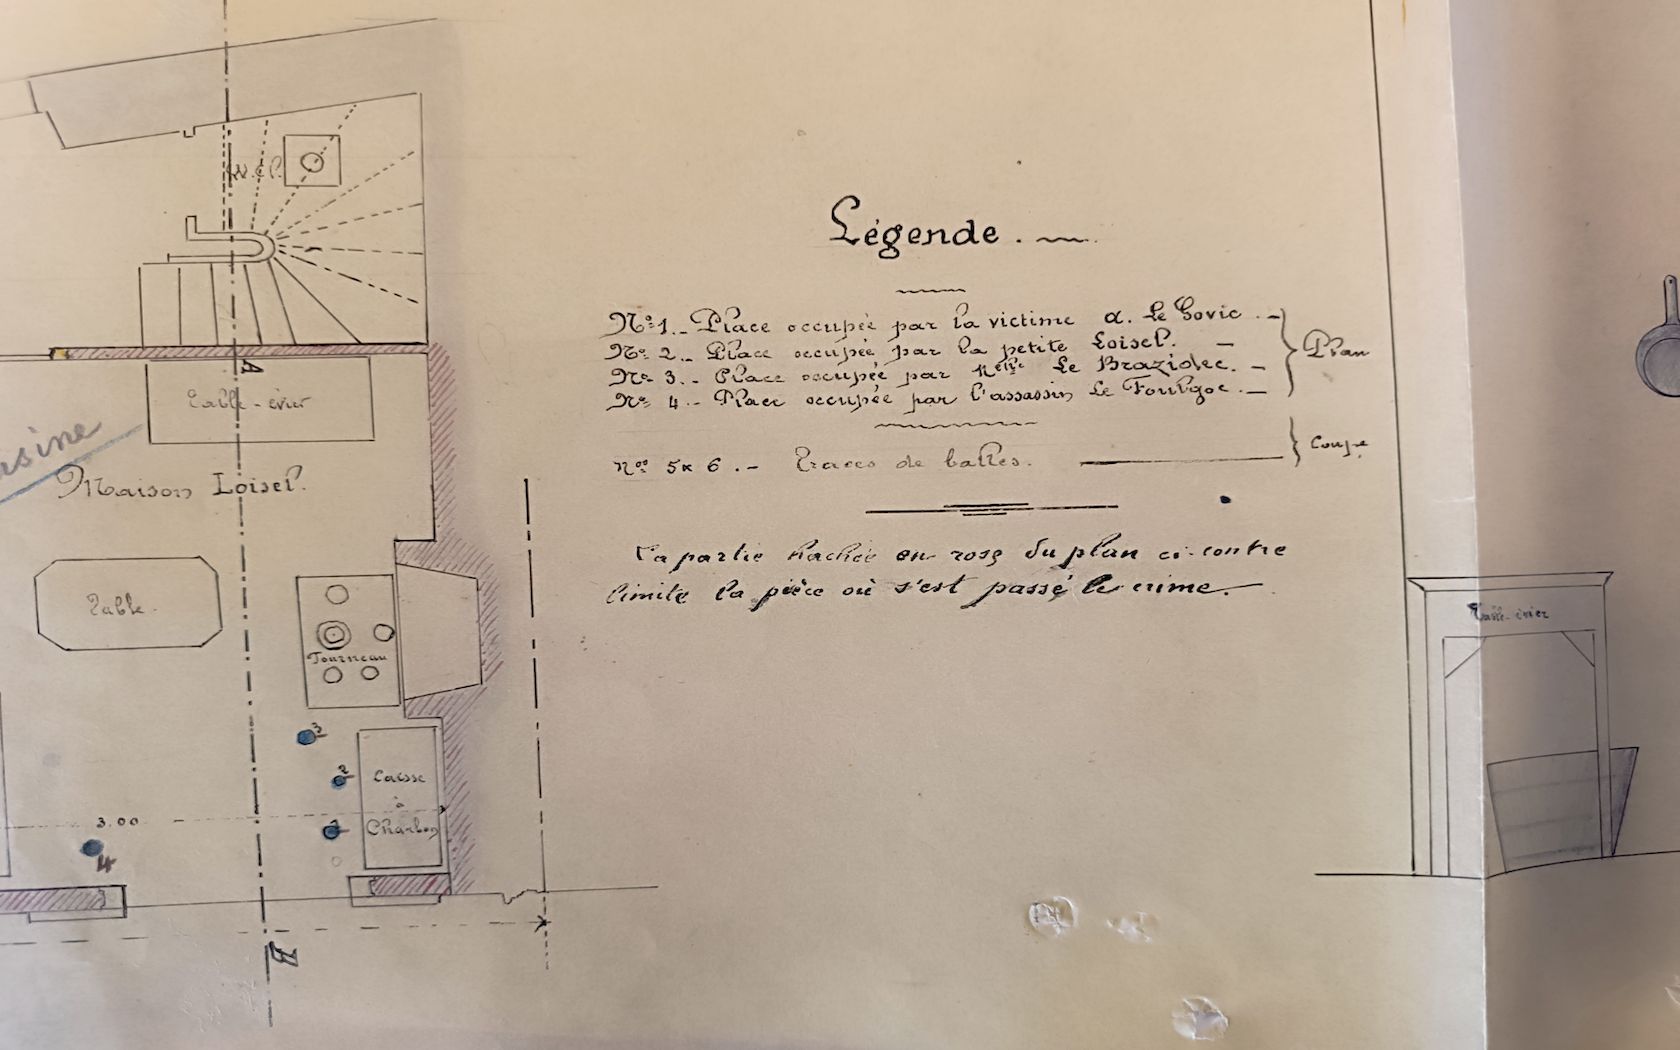 W.C.
A
Table-évier
Cuisine
Maison Loisel.
Table.
Fourneau
3
2
Caisse
à
Charbon
1
3.00
4
B
Légende.
N° 1._ Place occupée par la victime A. Le Govic._
N° 2._ Place occupée par la petite Loisel. _
N° 3._ Place occupée par Melle Le Brazidec. _
N° 4._ Place occupée par l'assassin Le Foulgoc._
Plan
Nos 5 & 6._ Traces de balles.
Coupe
La partie hachée en rose du plan ci-contre
limite la pièce où s'est passé le crime.
Table-évier